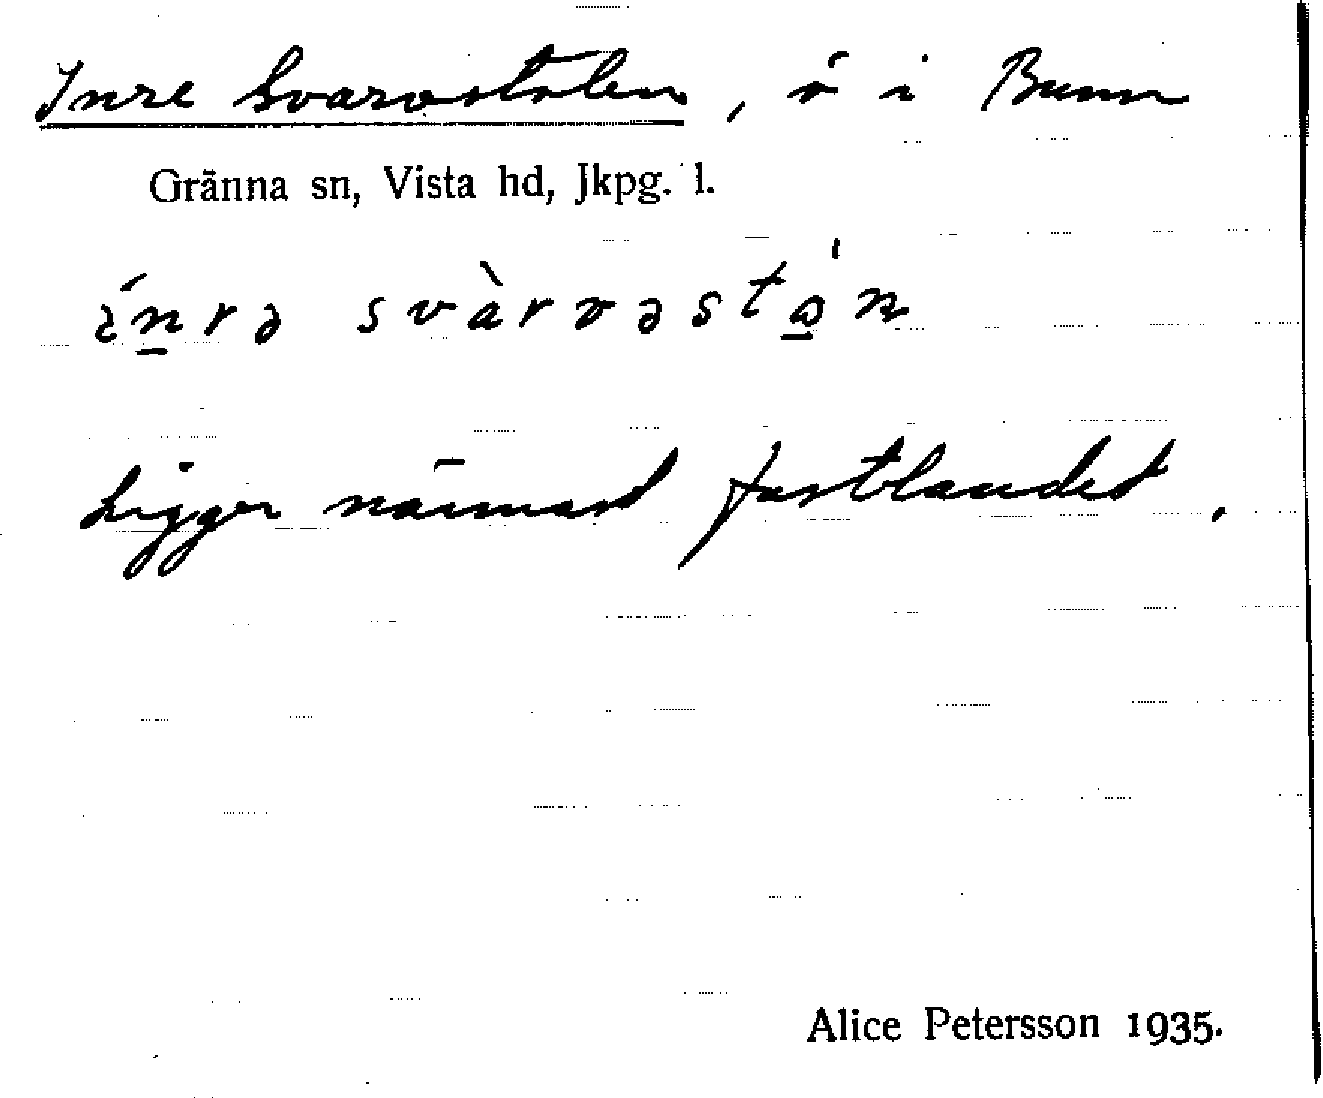 Inre Svarvstolen, ö i Bunn
Gränna sn, Vista hd, Jkpg. l.
ínrə svàrvəstá̱n
Ligger närmast fastlandet.
Alice Petersson 1935.